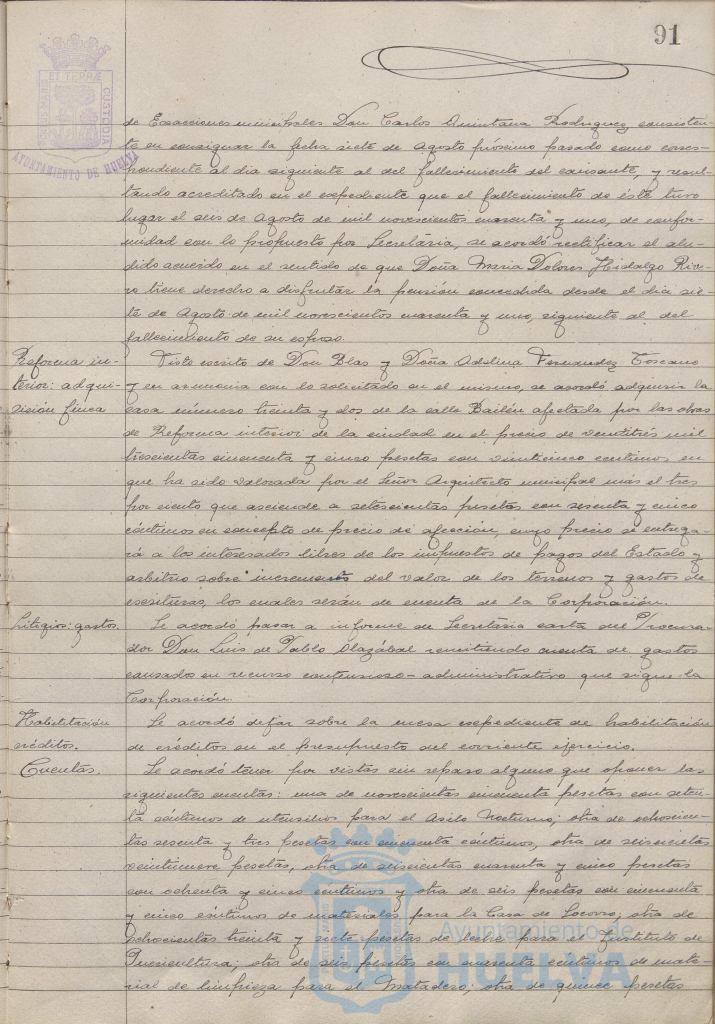 91
ET TERRÆ
CUSTODIA
AYUNTAMIENTO DE HUELVA
de Exacciones municipales Don Carlos Quintana Rodriguez consisten-
te en consignar la fecha siete de Agosto próximo pasado como corres-
pondiente al dia siguiente al del fallecimiento del causante, y resul-
tando acreditado en el expediente que el fallecimiento de éste tuvo
lugar el seis de Agosto de mil novescientos cuarenta y uno, de confor-
midad con lo propuesto por Secretária, se acordó rectificar el alu-
dido acuerdo en el sentido de que Doña Maria Dolores Hidalgo Rive-
ro tiene derecho a disfrutar la pensión concedida desde el dia sie-
te de Agosto de mil novescientos cuarenta y uno, siguiente al del
fallecimiento de su esposo.
Reforma in-
terior: adqui-
sición finca
Visto escrito de Don Blas y Doña Adelina Fernandez Toscano
y en armonia con lo solicitado en el mismo, se acordó adquirir la
casa número treinta y dos de la calle Bailén afectada por las obras
de Reforma interior de la ciudad en el precio de veintitrés mil
trescientas cincuenta y cinco pesetas con veinticinco centimos en
que ha sido valorada por el Señor Arquitecto municipal más el tres
por ciento que asciende a setescientas pesetas con sesenta y cinco
céntimos en concepto de precio de afección, cuyo precio se entrega-
rá a los interesados libres de los impuestos de pagos del Estado y
arbitrio sobre incremento del valor de los terrenos y gastos de
escrituras, los cuales serán de cuenta de la Corporación.
Litigios: gastos.
Se acordó pasar a informe de Secretária carta del Procura-
dor Don Luis de Pablo Olazábal remitiendo cuenta de gastos
causados en recurso contencioso-administrativo que sigue la
Corporación.
Habilitación
créditos.
Se acordó dejar sobre la mesa expediente de habilitación
de créditos en el presupuesto del corriente ejercicio.
Cuentas.
Se acordó tener por vistas sin reparo alguno que oponer las
siguientes cuentas: una de novescientas cincuenta pesetas con seten-
ta céntimos de utensilios para el Asilo Nocturno; otra de ochocien-
tas sesenta y tres pesetas con cincuenta céntimos, otra de seiscientas
veintinueve pesetas, otra de seiscientas cuarenta y cinco pesetas
con ochenta y cinco centimos y otra de seis pesetas con cincuenta
y cinco céntimos de materiales para la Casa de Socorro; otra de
ochocientas treinta y siete pesetas de leche para el Instituto de
Puericultura; otra de seis pesetas con cuarenta centimos de mate-
rial de limpieza para el Matadero; otra de quince pesetas
Ayuntamiento de
HUELVA